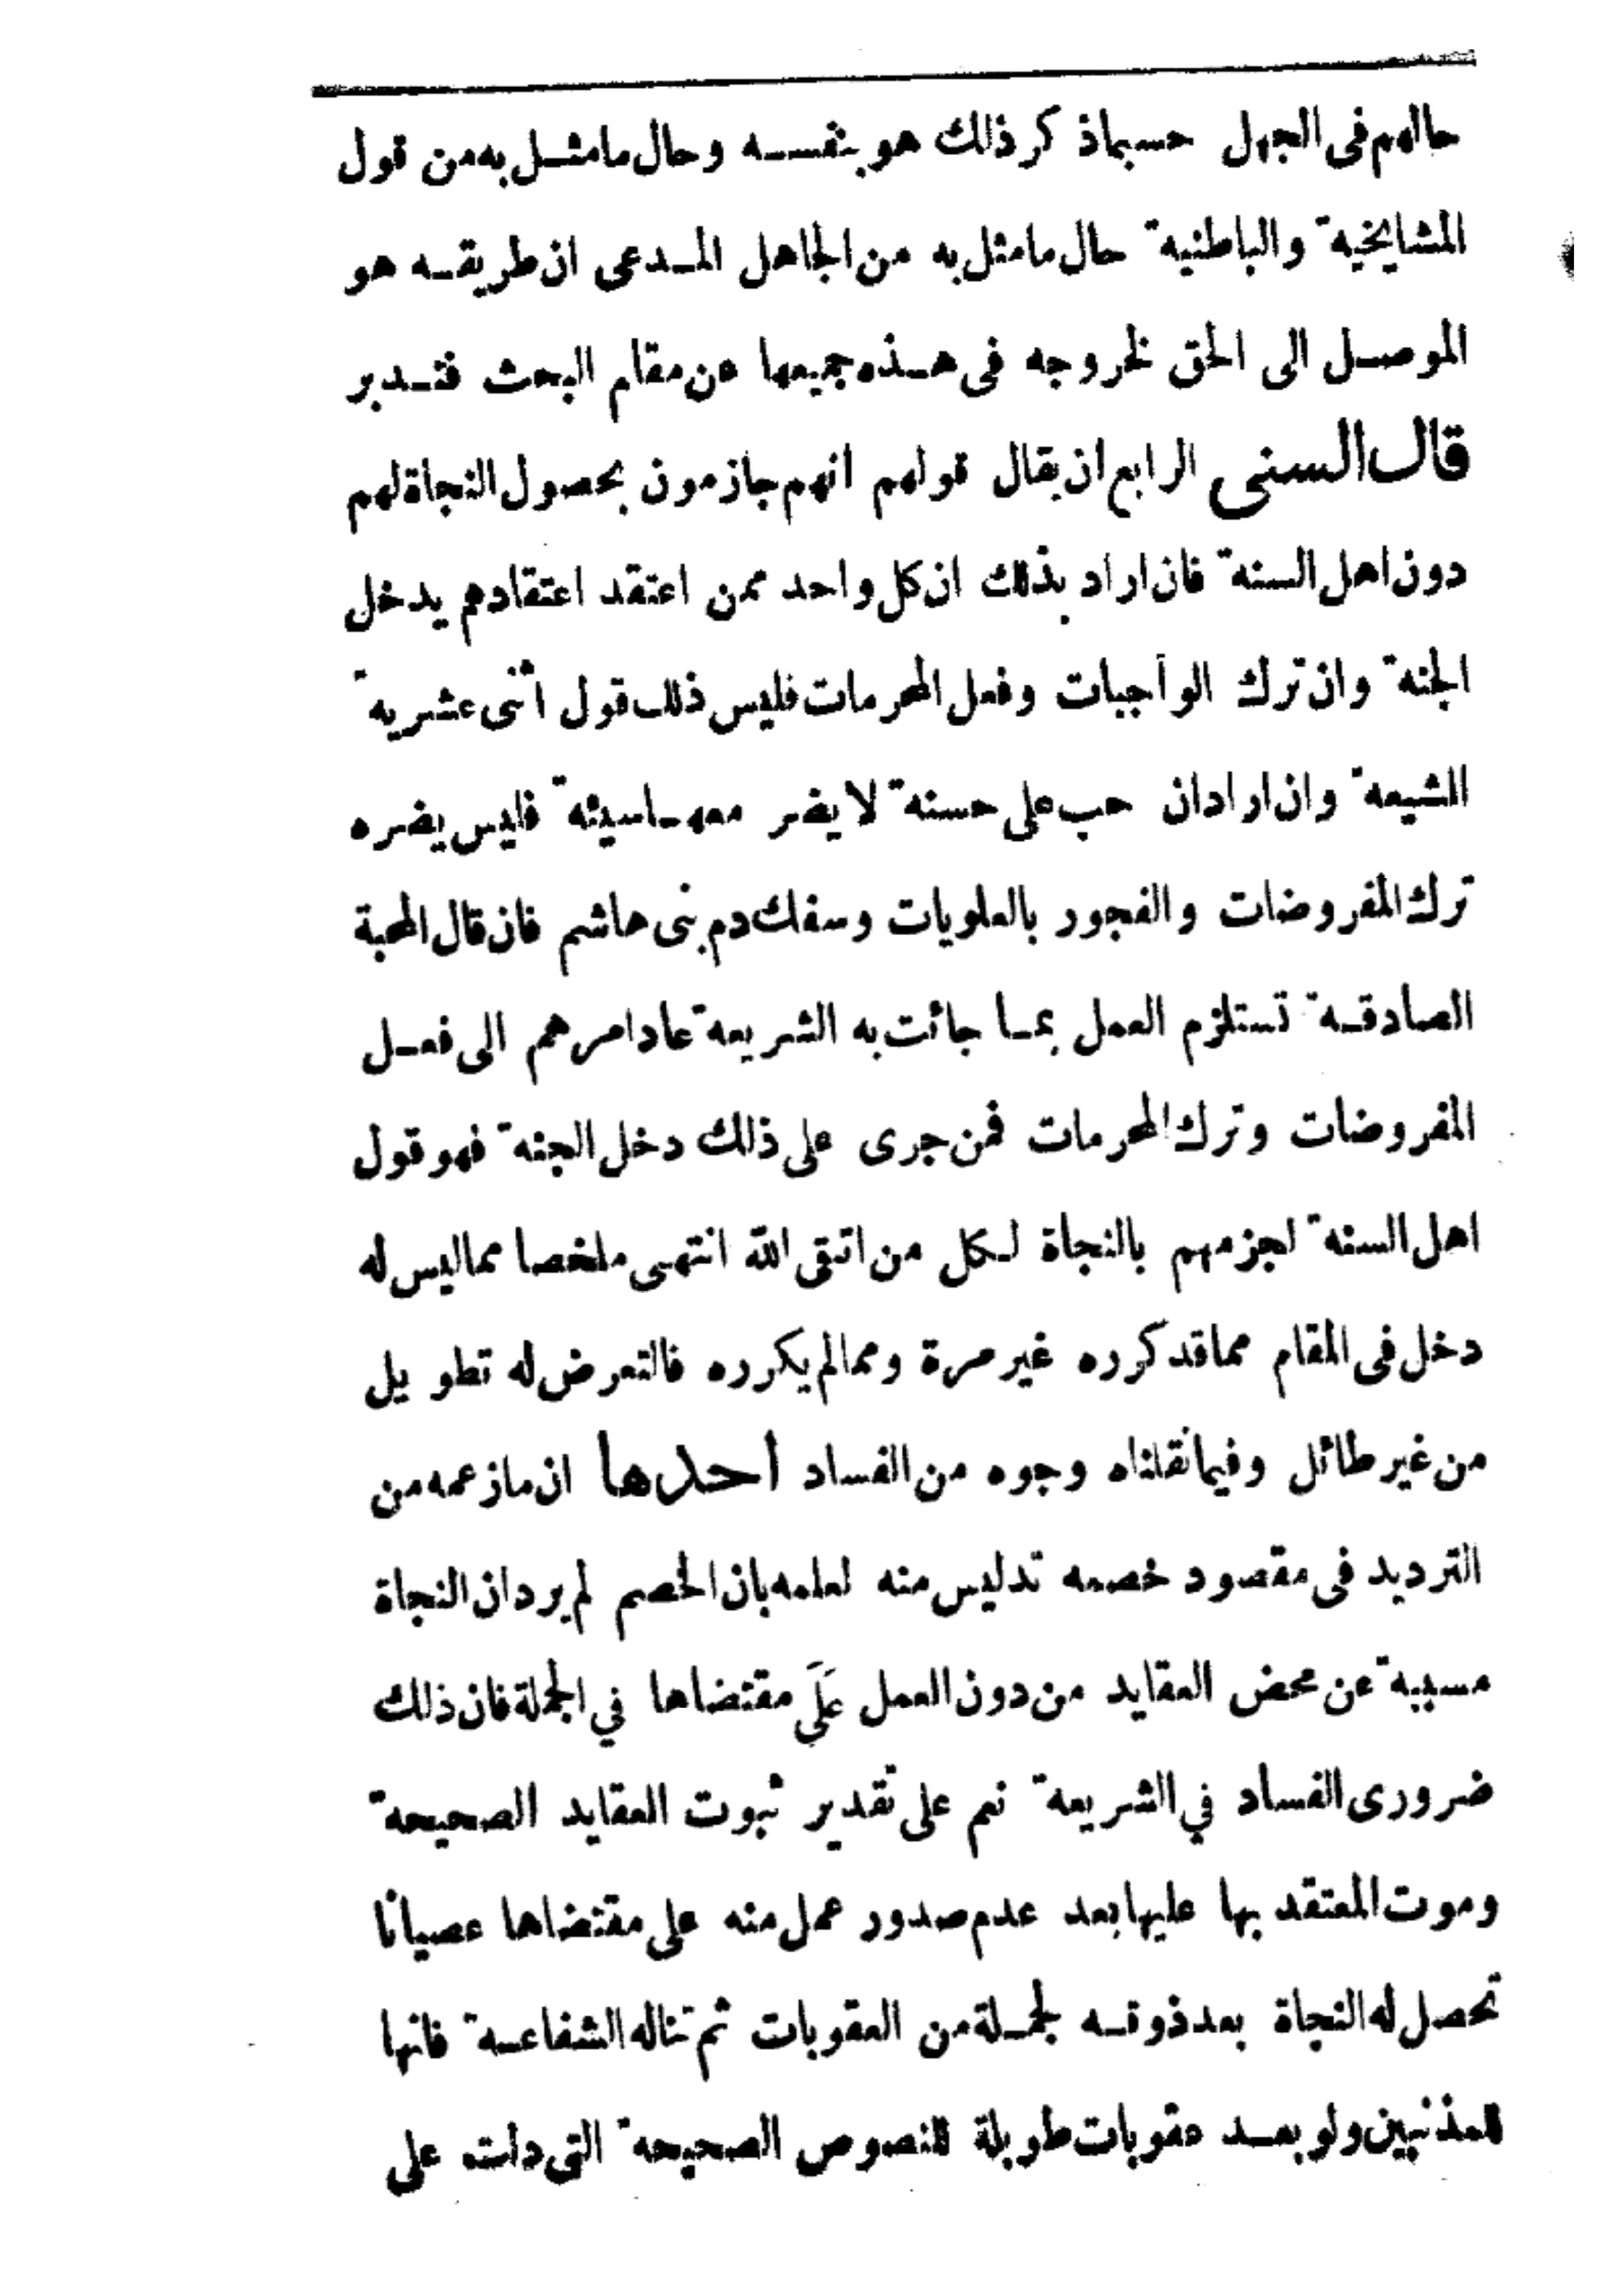 حالهم فى الجهل حسبماذ كر ذلك هو بنفسه وحال مامثل به من قول
المشايخية والباطنية حال مامثل به من الجاهل المدعى ان طريقه هو
الموصل الى الحق لخروجه فى هذه جميعها عن مقام البحث فتدبر
قال السنى الرابع ان يقال قولهم انهم جازمون بحصول النجاة لهم
دون اهل السنة فان اراد بذلك ان كل واحد ممن اعتقد اعتقادهم يدخل
الجنة وان ترك الواجبات وفعل المحرمات فليس ذلك قول اثنى عشرية
الشيعة وان اراد ان حب على حسنة لا يضر معها سيئة فليس يضره
ترك المفروضات والفجور بالعلويات وسفك دم بنى هاشم فان قال المحبة
الصادقة تستلزم العمل بما جائت به الشريعة عاد امرهم الى فعل
المفروضات وترك المحرمات فمن جرى على ذلك دخل الجنة فهو قول
اهل السنة لجزمهم بالنجاة لكل من اتقى الله انتهى ملخصا مما ليس له
دخل فى المقام مما قد كرره غير مرة ومما لم يكرره فالتعرض له تطويل
من غير طائل وفيما نقلناه وجوه من الفساد أحدها ان ما زعمه من
الترديد فى مقصود خصمه تدليس منه لعلمه بان الخصم لم يرد ان النجاة
مسببة عن محض العقايد من دون العمل عَلَى مقتضاها في الجملة فان ذلك
ضرورى الفساد في الشريعة نعم على تقدير ثبوت العقايد الصحيحة
وموت المعتقد بها عليها بعد عدم صدور عمل منه على مقتضاها عصيانا
تحصل له النجاة بعد ذوقه لجملة من العقوبات ثم تناله الشفاعة فانها
للمذنبين ولو بعد عقوبات طويلة للنصوص الصحيحة التى دلت على